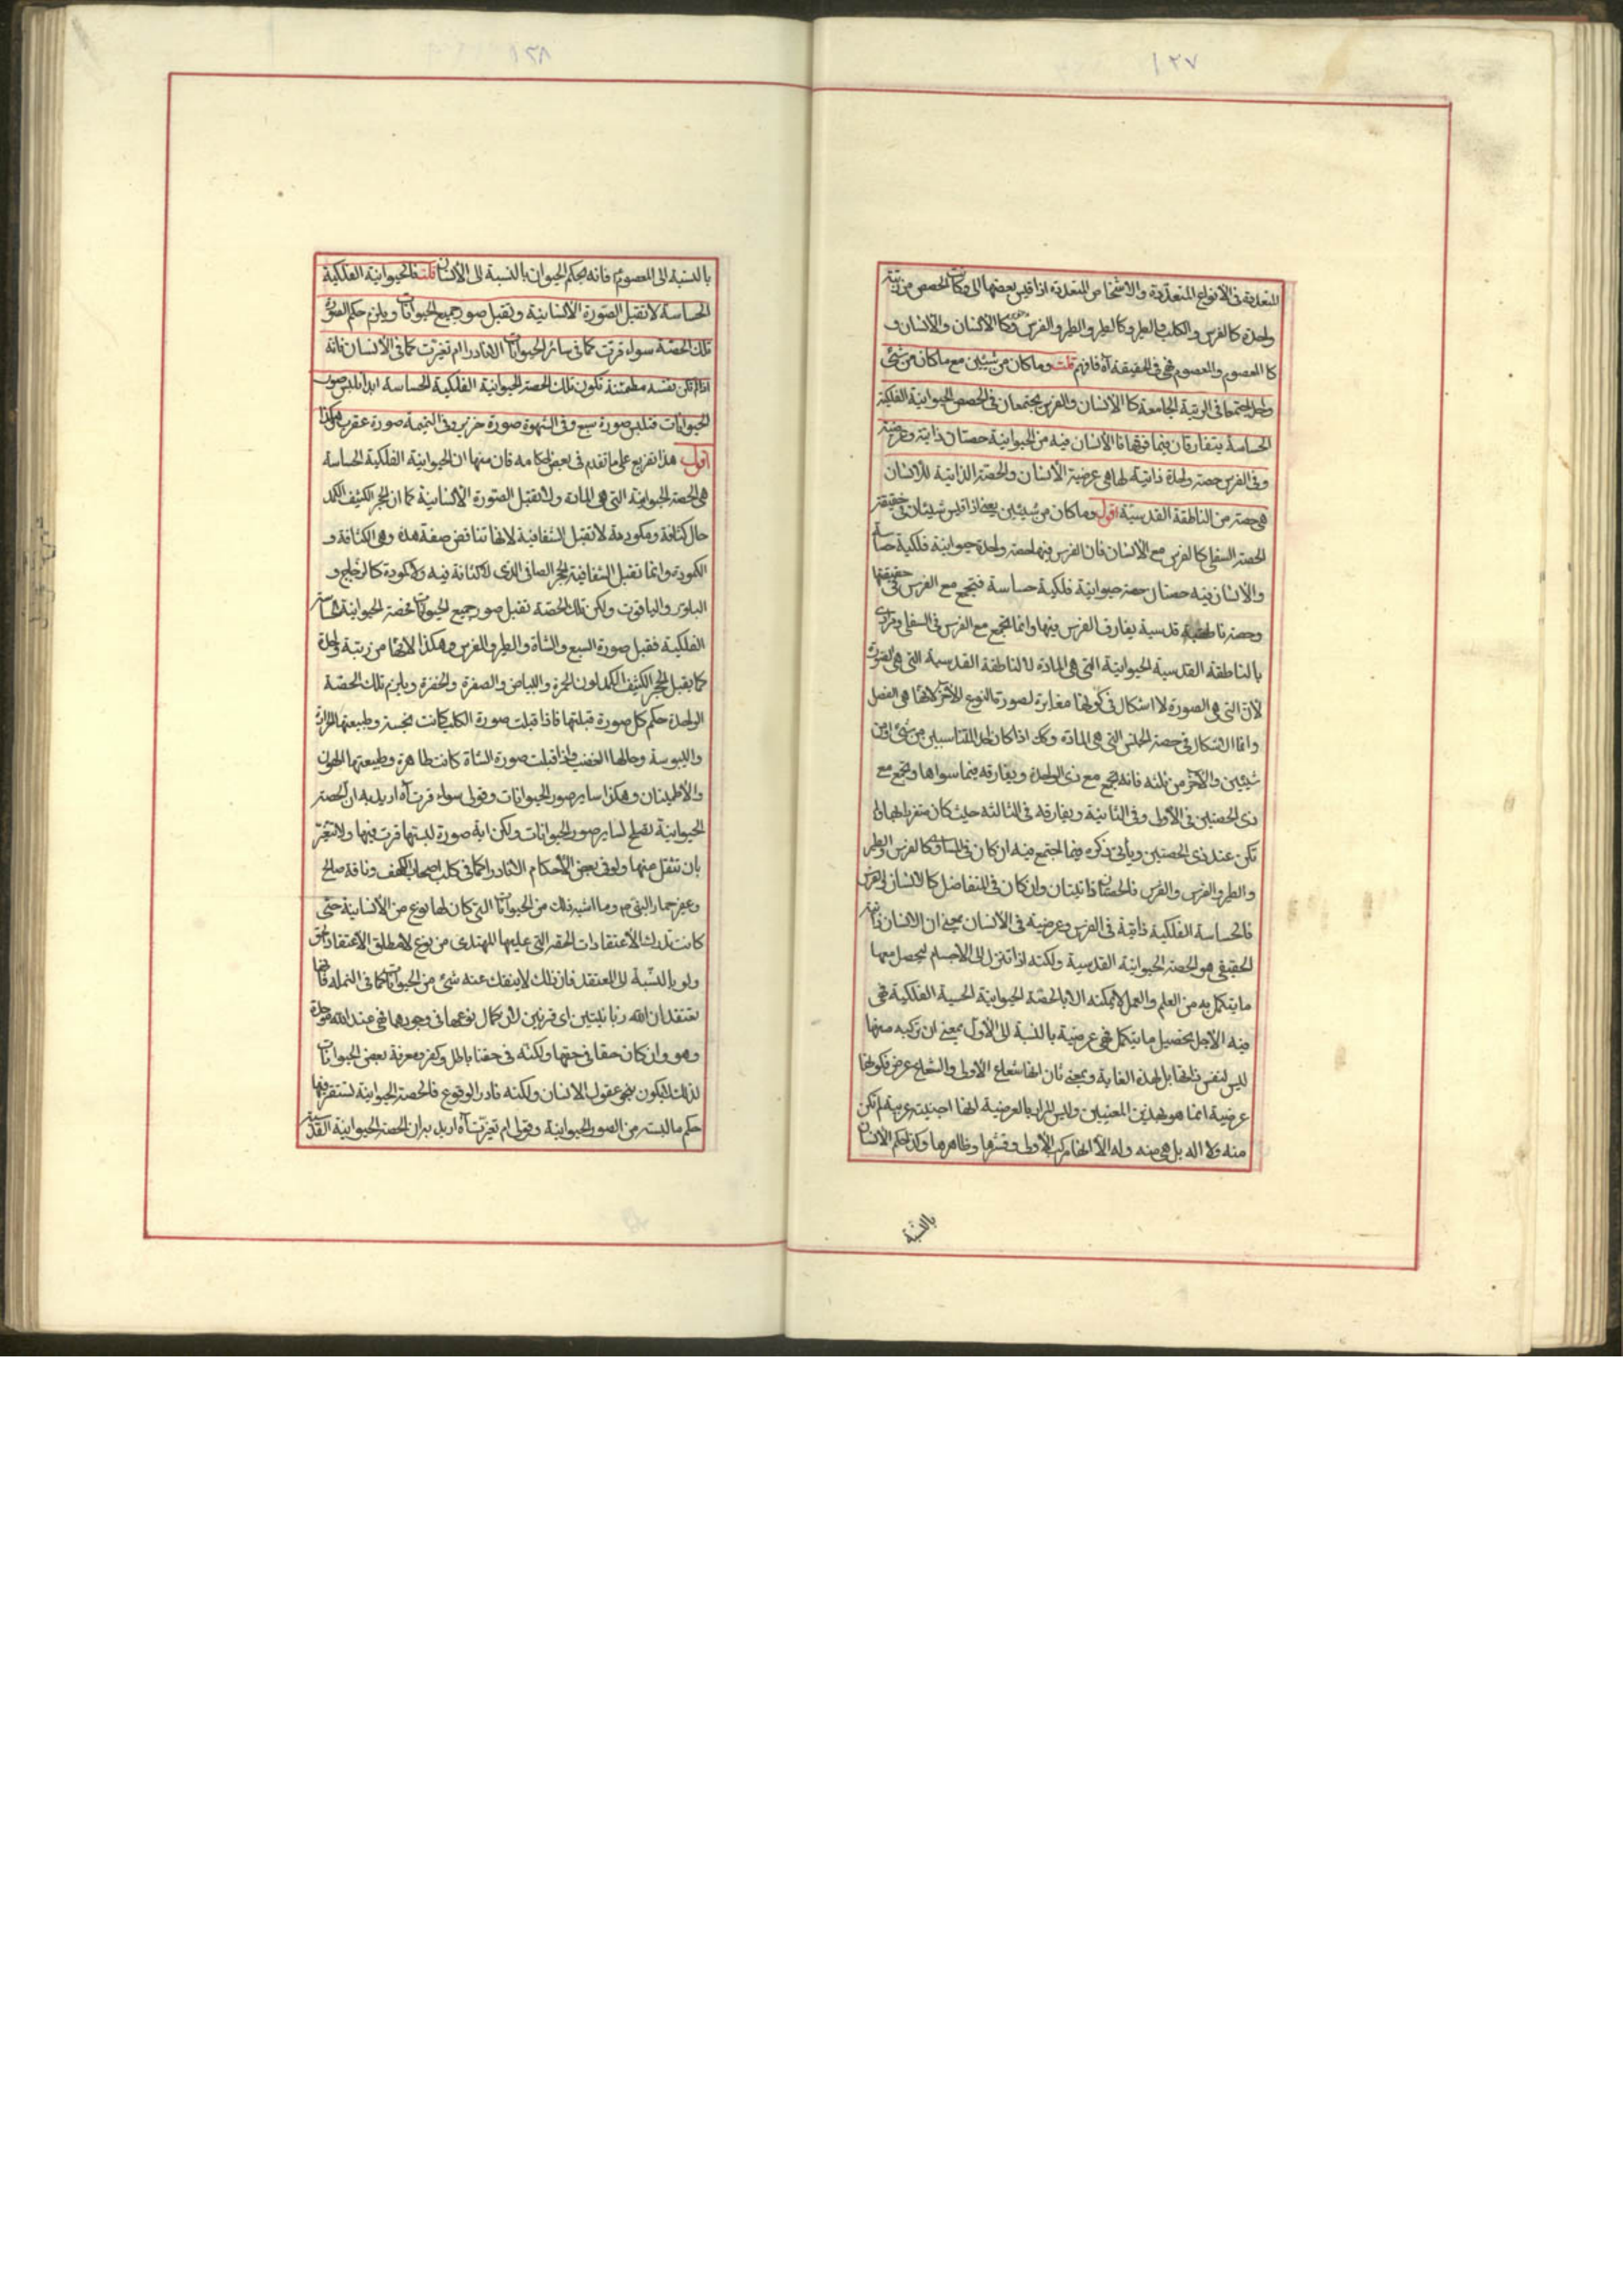 ١٢٧
المتعددة فى الأنواع المتعددة والاشخاص المتعددة اذا قيس بعضها الى وكانت الحصص من رتبة
واحدة كالفرس والكلب والطير وكالطير والطير والفرس وكالأنسان والأنسان و
كالمعصوم والمعصوم فهى فى الحقيقة آه فافهم قلت وما كان من شيئين مع ما كان من شئ
واحد اجتمعا فى الرتبة الجامعة كالأنسان والفرس يجتمعان فى الحصص الحيوانية الفلكية
الحساسة يتفارقان فيما فوقها فالأنسان فيه من الحيوانية حصتان ذاتية وعرضية
وفى الفرس حصة واحدة ذاتية لها هى عرضية الأنسان والحصة الذاتية للأنسان
هى حصة من الناطقة القدسية اقول وما كان من شيئين يعنى اذا قيس شيئان فى حقيقة
الحصة السفلى كالفرس مع الأنسان فان الفرس فيها حصة واحدة حيوانية فلكية حساسة
والأنسان فيه حصتان حصة حيوانية فلكية حساسة فيجتمع مع الفرس فى حقيقتها
وحصة ناطقية قدسية يفارق الفرس فيها وانما يجتمع مع الفرس فى السفلى ومرادى
بالناطقة القدسية الحيوانية التى هى المادة لا الناطقة القدسية التى هى الصورة
لأن التى هى الصورة لا اشكال فى كونها مغايرة لصورة النوع للأخر لانها هى الفصل
وانما الاشكال فى حصة الجنس التى هى المادة وكك اذا كان احد المقتاسبين من شئ او من
شيئين والآخر من ثلثه فانه يجتمع مع ذى الواحدة ويفارقه فيما سواها ويجتمع مع
ذى الحصتين فى الأولى وفى الثانية ويفارقه فى الثالثة حيث كان متفردا بها اذ لم
تكن عند ذى الحصتين ويأتى ذكره فيما اجتمع فيه ان كان فى المساوى كالفرس والطير
والطير والفرس والفرس فالحصتان ذاتيتان وان كان فى المتفاضل كالانسان والفرس
فالحساسة الفلكية ذاتية فى الفرس وعرضية فى الأنسان بمعنى ان الانسان ذاتيته
الحقيقى هو الحصة الحيوانية القدسية ولكنه اذا تنزل الى الاجسام ليحصل معها
ما يتكمل به من العلم والعمل لا يمكنه الا بالحصة الحيوانية الحسية الفلكية فهى
فيه الاجل تحصيل ما يتكمل فهى عرضية بالنسبة الى الأول بمعنى ان تركبه معها
ليس لنفس ذاتها بل لهذه الغاية وبمعنى ثان انها شعاع الأولى والشعاع عرض فكونها
عرضية انما هو بهذين المعنيين وليس المراد بالعرضية انها اجنبية غريبة لم تكن
منه ولا اله بل هى منه وله الا انها مركب الأولى وقشرها وظاهرها وكذا حكم الانسان
بالنسبة
١٢٨
بالنسبة الى المعصوم فانه بحكم الحيوان بالنسبة الى الأنسان قلت فالحيوانية الفلكية
الحساسة لا تقبل الصورة الأنسانية وتقبل صور جميع الحيوانات ويلزم حكم الصورة
تلك الحصة سواء قرت كما فى سائر الحيوانات الا نادرا ام تغيرت كما فى الأنسان فانه
اذا لم تكن نفسه مطمئنة تكون تلك الحصة الحيوانية الفلكية الحساسة ابدا يلبس صورة
الحيوانات فتلبس صورة سبع وفى الشهوة صورة خنزير وفى النميمة صورة عقرب وهكذا
اقول هذا تفريع على ما تقدم فى بعض احكامه فان منها ان الحيوانية الفلكية الحساسة
هى الحصة الحيوانية التى هى المادة ولا تقبل الصورة الأنسانية كما ان الحجر الكثيف الكمد
حال كثافة ومكودية لا تقبل الشفافية لانها تناقض صفة هذه وهى الكثافة و
الكمودة وانما تقبل الشفافية الحجر الصافى الذى لا كثافة فيه ولا كمودة كالزجاج و
البلور والياقوت ولكن تلك الحصة تقبل صور جميع الحيوانات فحصة الحيوانية الحساسة
الفلكية فقبل صورة السبع والشاة والطير والفرس وهكذا لانها من رتبة واحدة
كما يقبل الحجر الكثيف الكمد لون الحمرة والبياض والصفرة والخضرة ويلزم تلك الحصة
الواحدة حكم كل صورة قبلتها فاذا قبلت صورة الكلب كانت نجسة وطبيعتها الحرارة
واليبوسة وحالها الغضب واذا قبلت صورة الشاة كانت طاهرة وطبيعتها الهون
والأطمينان وهكذا ساير صور الحيوانات وقولى سواء قرت آه اريد به ان الحصة
الحيوانية تصلح لساير صور الحيوانات ولكن اية صورة لبستها قرت فيها ولا تتغير
بان تنتقل منها ولو فى بعض الأحكام الا نادرا كما فى كلب اصحاب الكهف وناقة صالح
وعفير حمار النبى ص وما اشبه ذلك من الحيوانات التى كان لها نوع من الأنسانية حتى
كانت تدرك الأعتقادات الحقة التى عليها المهتدى من نوع لا مطلق الأعتقاد الحق
ولو بالنسبة الى المعتقد فان ذلك لا ينفك عنه شئ من الحيوانات كما فى النملة فانها
تعتقد ان الله زبانيتين اى قرنين لأن كمال نوعها فى وجودهما فهى عند الله موحدة
وهو وان كان حقا فى حقها ولكنه فى حقنا باطل وكفر ومعرفة بعض الحيوانات
لذلك لا يكون بنحو عقول الانسان ولكنه نادر الوقوع فالحصة الحيوانية تستقر فيها
حكم ما لبسته من الصور الحيوانية وقولى ام تغيرت آه اريد به ان الحصة الحيوانية القدسية